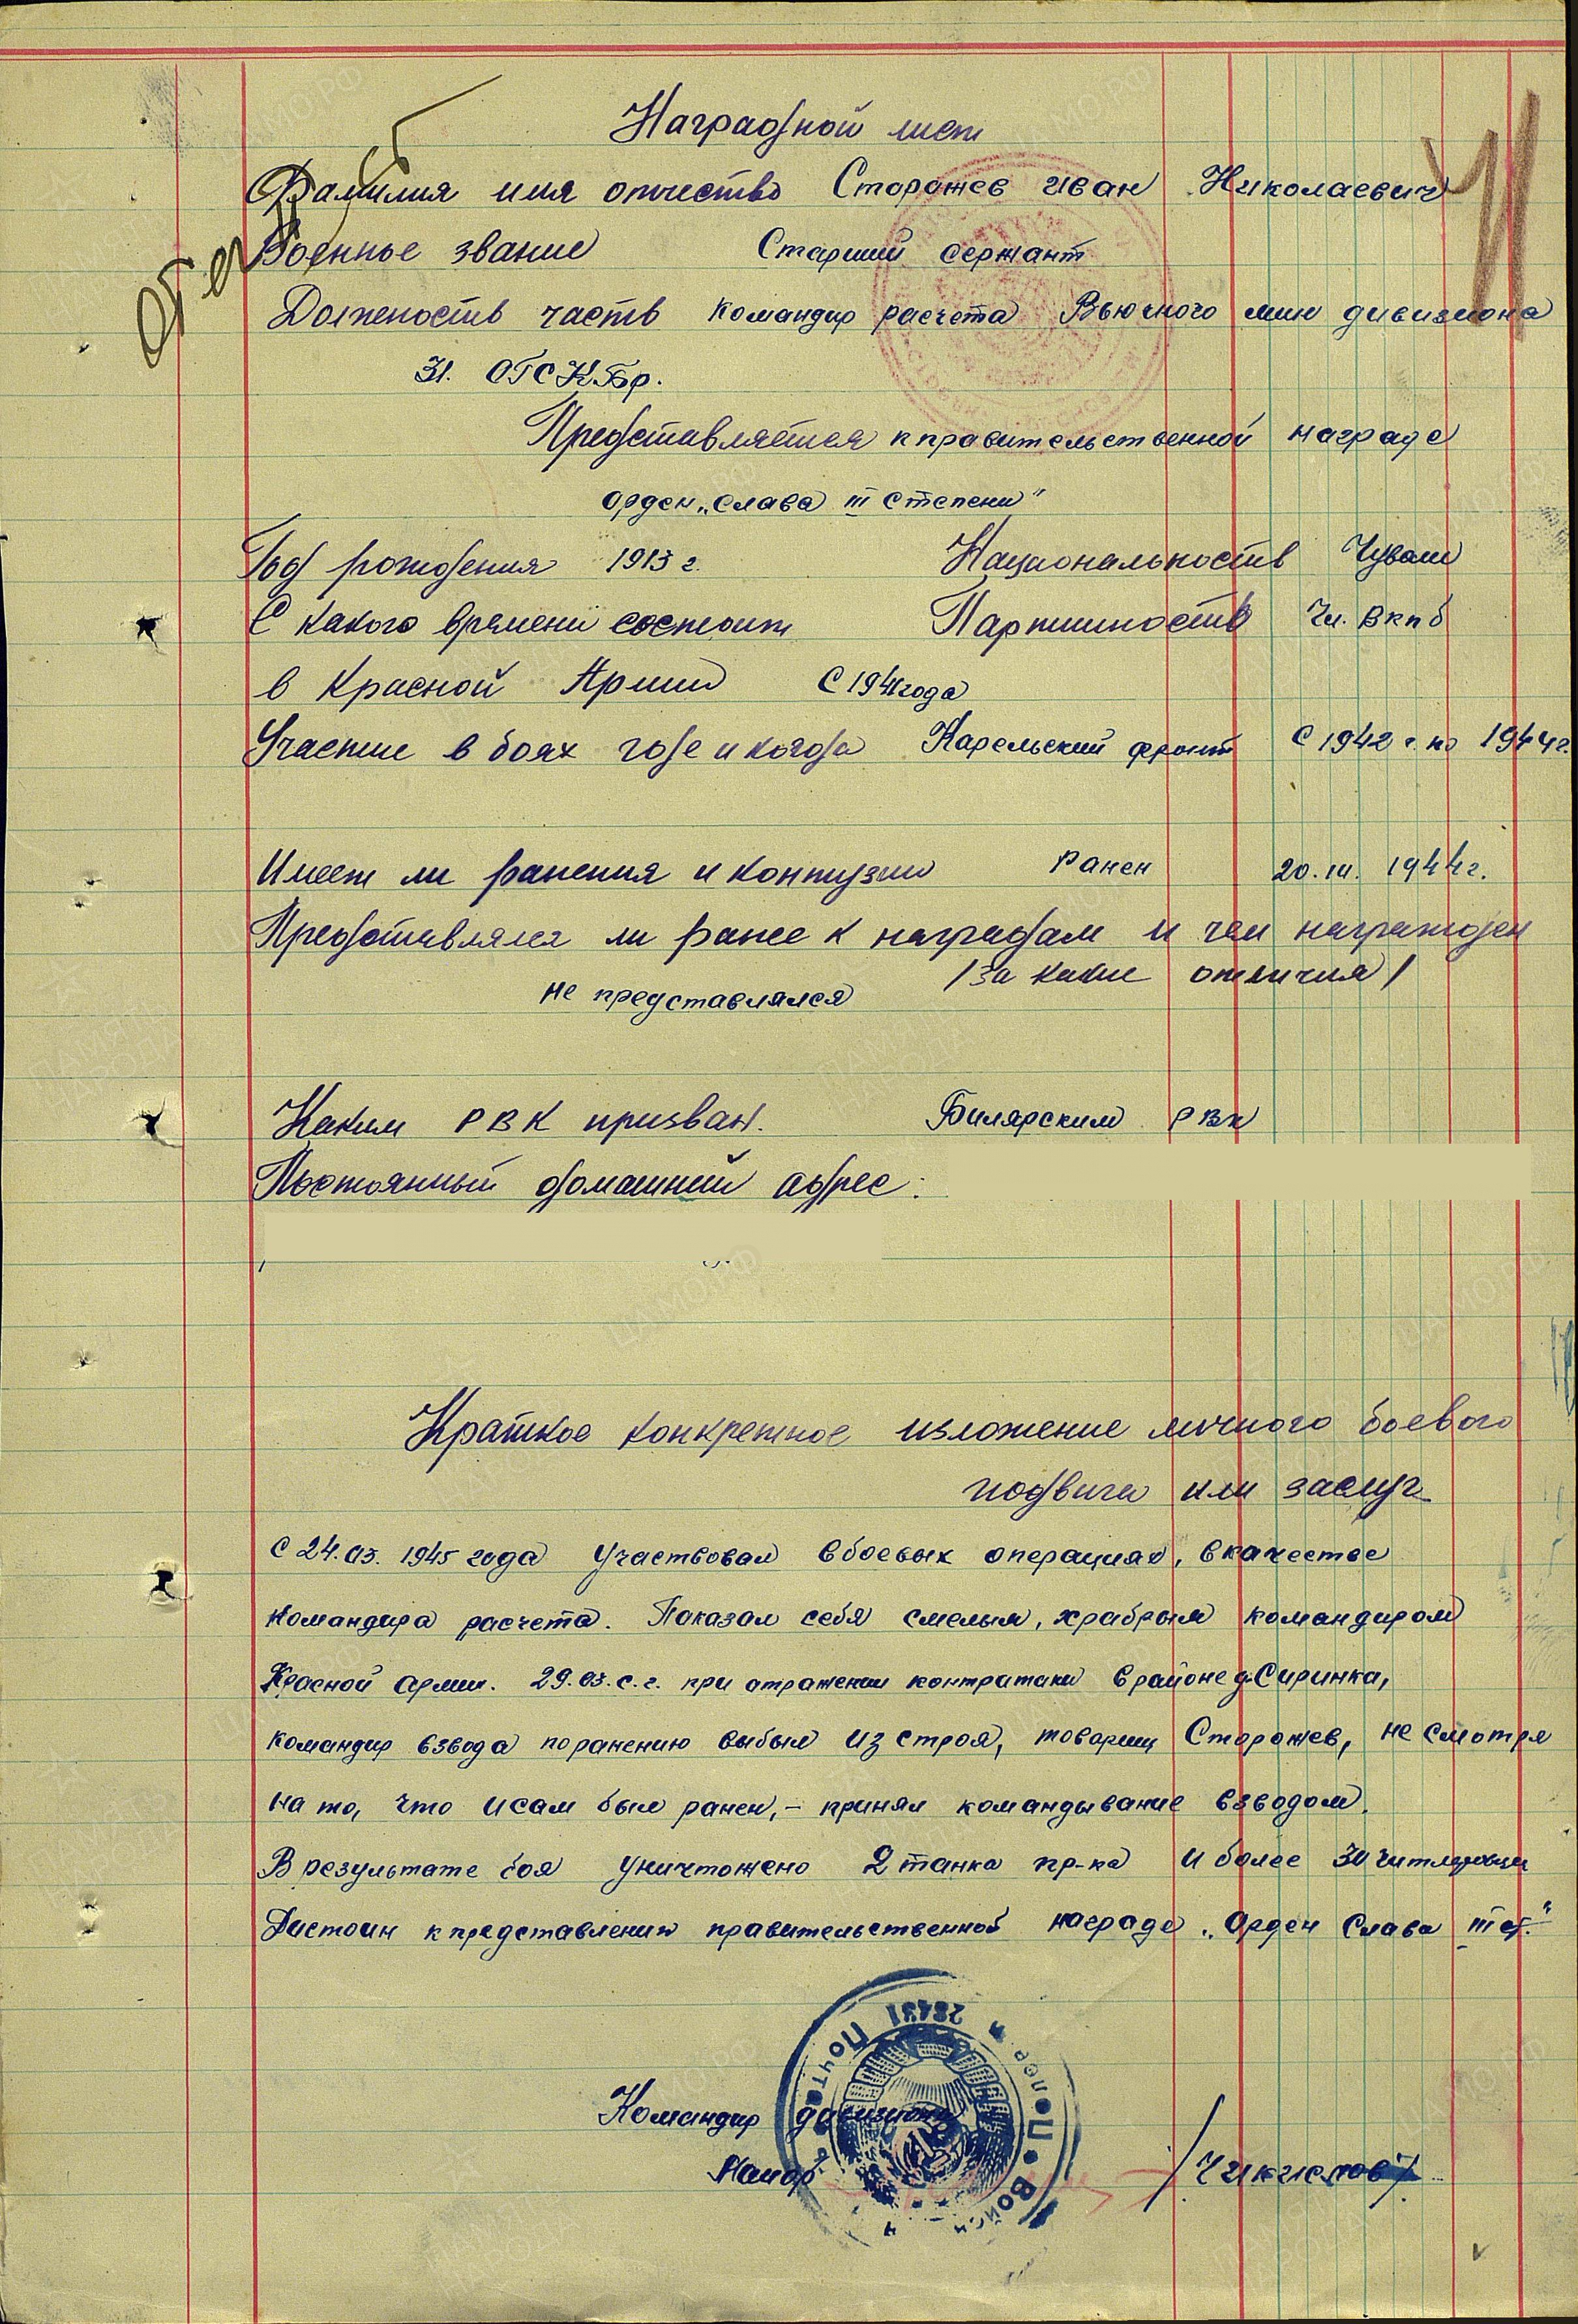 Наградной лист
Фамилия имя отчество Сторожев Иван Николаевич
Военное звание Старший сержант
Должность часть командир расчета Вьючного мин дивизиона
31. ОГСКБр.
Представляется к правительственной награде
орден „Слава III степени"
Год рождения 1913 г. Национальность Чуваш
С какого времени состоит Партийность Чл. ВКПб
в Красной Армии С 1941 года
Участие в боях где и когда Карельский фронт С 1942 г. по 1944 г.
Имеет ли ранения и контузии Ранен 20.III. 1944 г.
Представлялся ли ранее к наградам и чем награжден
/за какие отличия/
не представлялся
Каким РВК призван. Билярским РВК
Постоянный домашний адрес:
Краткое конкретное изложение личного боевого
подвига или заслуг
С 24.03. 1945 года участвовал в боевых операциях, в качестве
командира расчета. Показал себя смелым, храбрым командиром
Красной армии. 29.03.с.г. при отражении контратаки в районе д.Сиринка,
командир взвода по ранению выбыл из строя, товарищ Сторожев, не смотря
на то, что и сам был ранен,- принял командывание взводом.
В результате боя уничтожено 2 танка пр-ка и более 30 гитлеровцев
Достоин к представлению правительственной награде „Орден Слава III ст."
Командир дивизиона
Майор /Чикислов/
28431 Полевая Почта Войск